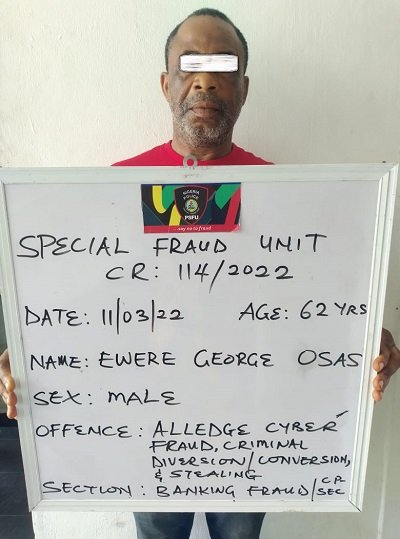 NIGERIA
POLICE
PSFU
... say no to fraud
SPECIAL FRAUD UNIT
CR: 114/2022
DATE: 11/03/22 AGE: 62 YRS
NAME: EWERE GEORGE OSAS
SEX: MALE
OFFENCE: ALLEDGE CYBER
FRAUD, CRIMINAL
DIVERSION/CONVERSION,
& STEALING
SECTION: BANKING FRAUD/CR
SEC